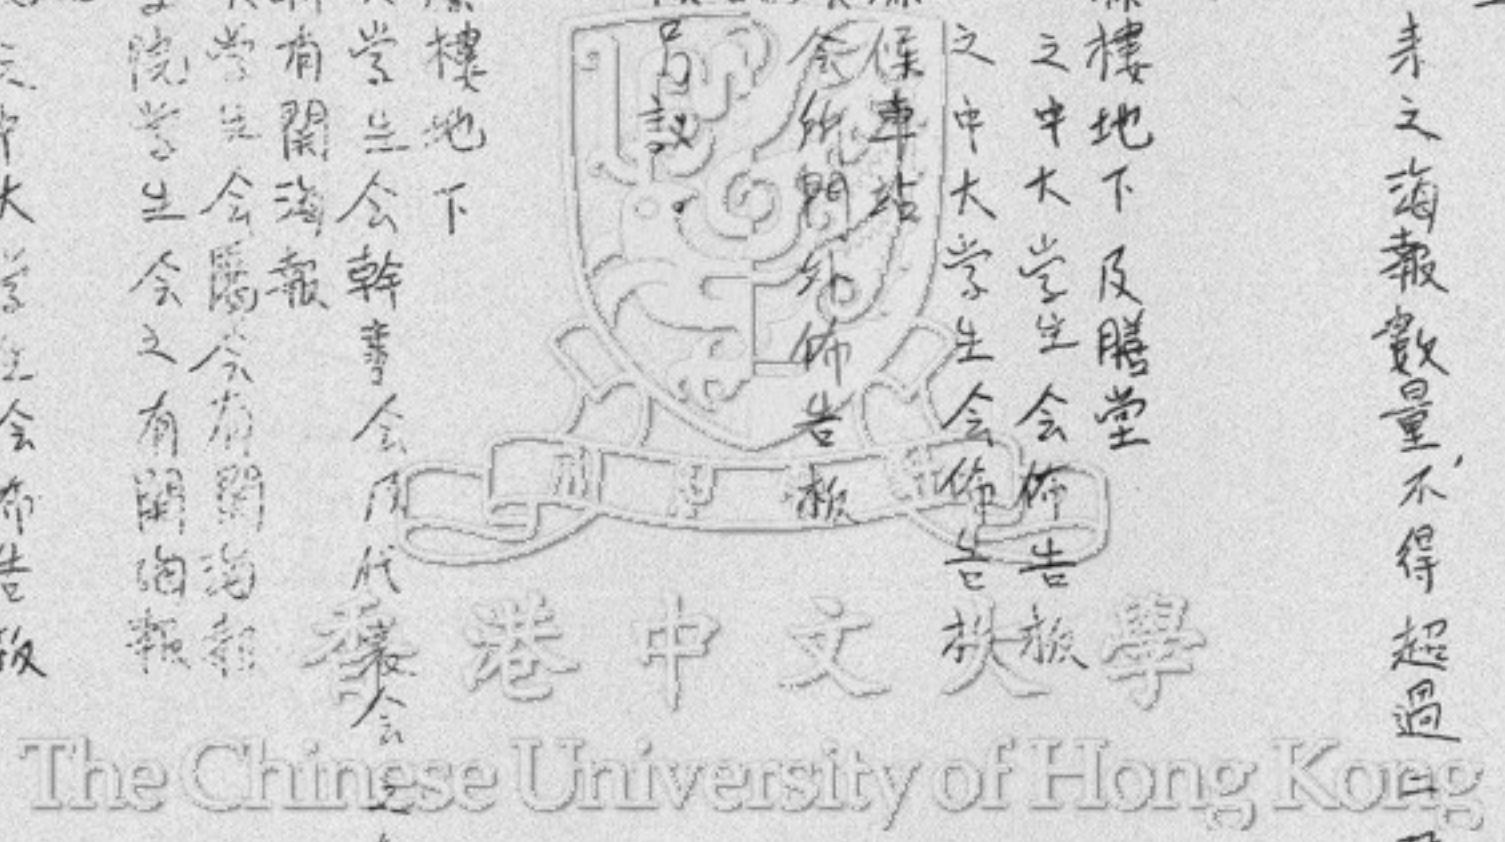 来之海報數量,不得超過二
樓地下及膳堂
之中大学生会佈告板
之中大学生会佈告板
候車站
会所門外佈告板
議。
樓地下
学生会幹事会及代表会之
有関海報
学生会屬会有関海報
院学生会之有関海報
大学生会布告板
香港中文大學
The Chinese University of Hong Kong